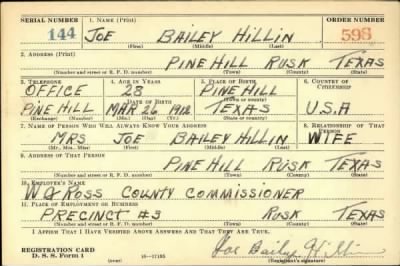 SERIAL NUMBER 1. NAME (Print) ORDER NUMBER
144 JOE BAILEY HILLIN 598
(First) (Middle) (Last)
2. ADDRESS (Print)
PINE HILL RUSK TEXAS
(Number and street or R. F. D. number) (Town) (County) (State)
3. TELEPHONE 4. AGE IN YEARS 5. PLACE OF BIRTH 6. COUNTRY OF CITIZENSHIP
OFFICE 28 PINE HILL
DATE OF BIRTH (Town or county)
PINE HILL MAR 26 1912 TEXAS U.S.A
(Exchange) (Number) (Mo.) (Day) (Yr.) (State or country)
7. NAME OF PERSON WHO WILL ALWAYS KNOW YOUR ADDRESS 8. RELATIONSHIP OF THAT PERSON
MRS JOE BAILEY HILLIN WIFE
(Mr., Mrs., Miss) (First) (Middle) (Last)
9. ADDRESS OF THAT PERSON
PINE HILL RUSK TEXAS
(Number and street or R. F. D. number) (Town) (County) (State)
10. EMPLOYER'S NAME
ROSS COUNTY COMMISSIONER
11. PLACE OF EMPLOYMENT OR BUSINESS
PRECINCT #3 RUSK TEXAS
(Number and street or R. F. D. number) (Town) (County) (State)
I AFFIRM THAT I HAVE VERIFIED ABOVE ANSWERS AND THAT THEY ARE TRUE.
REGISTRATION CARD
D. S. S. Form 1 (over) 16—17105 Joe Bailey Hillin
(Registrant's signature)